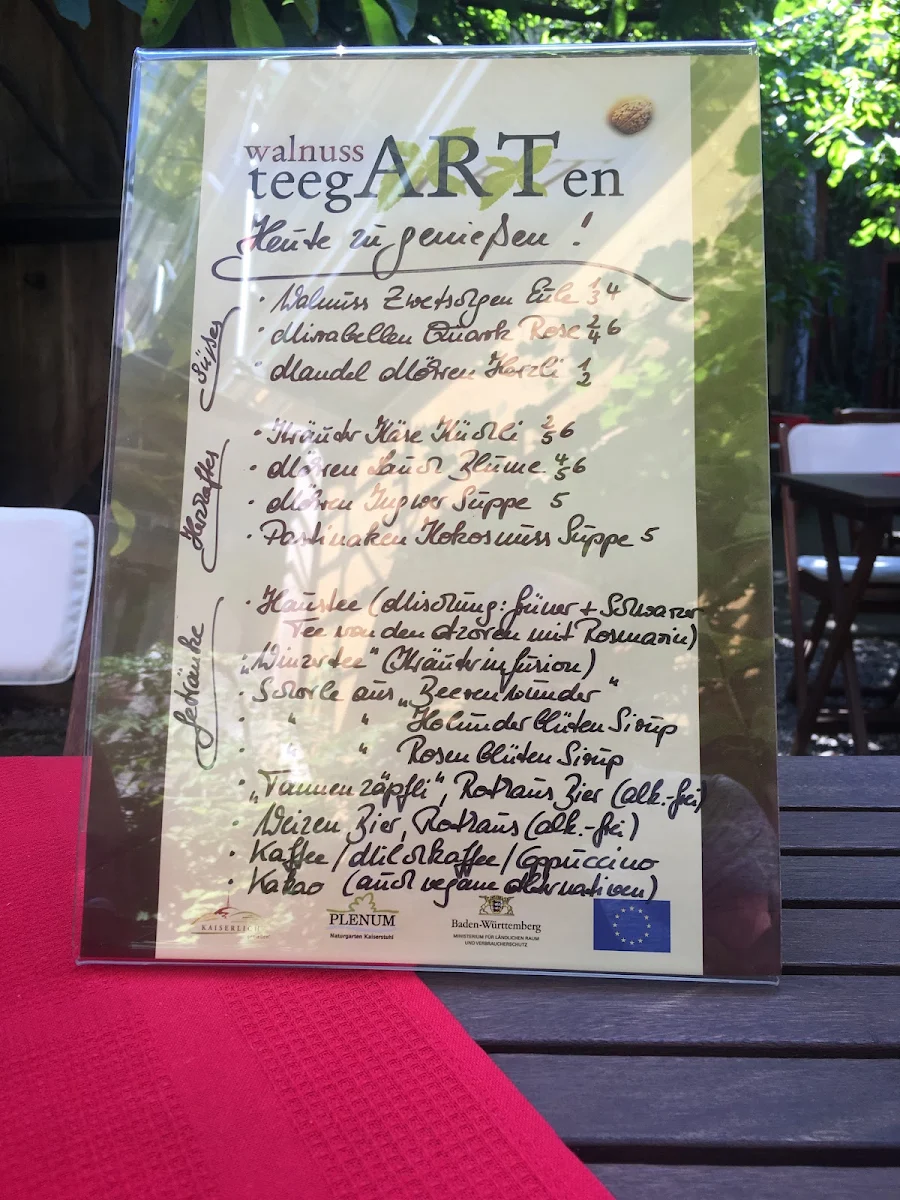 walnuss
teegARTen
Heute zu genießen!
Süßes
· Walnuss Zwetschgen Eule 1 3 4
· Mirabellen Quark Rose 2 4 6
· Mandel Möhren Herzli 1 2
Herzhaftes
· Kräuter Käse Küchli 2 5 6
· Möhren Lauch Blume 4 5 6
· Möhren Ingwer Suppe 5
· Pastinaken Kokosnuss Suppe 5
Getränke
· Haustee (Mischung: Grüner + Schwarzer
Tee von den Azoren mit Rosmarin)
· „Winzertee" (Kräuterinfusion)
· Schorle aus „Beerenwunder"
· " " Holunderblüten Sirup
· " " Rosenblüten Sirup
· „Tannenzäpfli", Rothaus Bier (alk.-frei)
· Weizen Bier, Rothaus (alk.-frei)
· Kaffee / Milchkaffee / Cappuccino
· Kakao (auch vegane Alternativen)
PLENUM
Naturgarten Kaiserstuhl
Baden-Württemberg
MINISTERIUM FÜR LÄNDLICHEN RAUM
UND VERBRAUCHERSCHUTZ